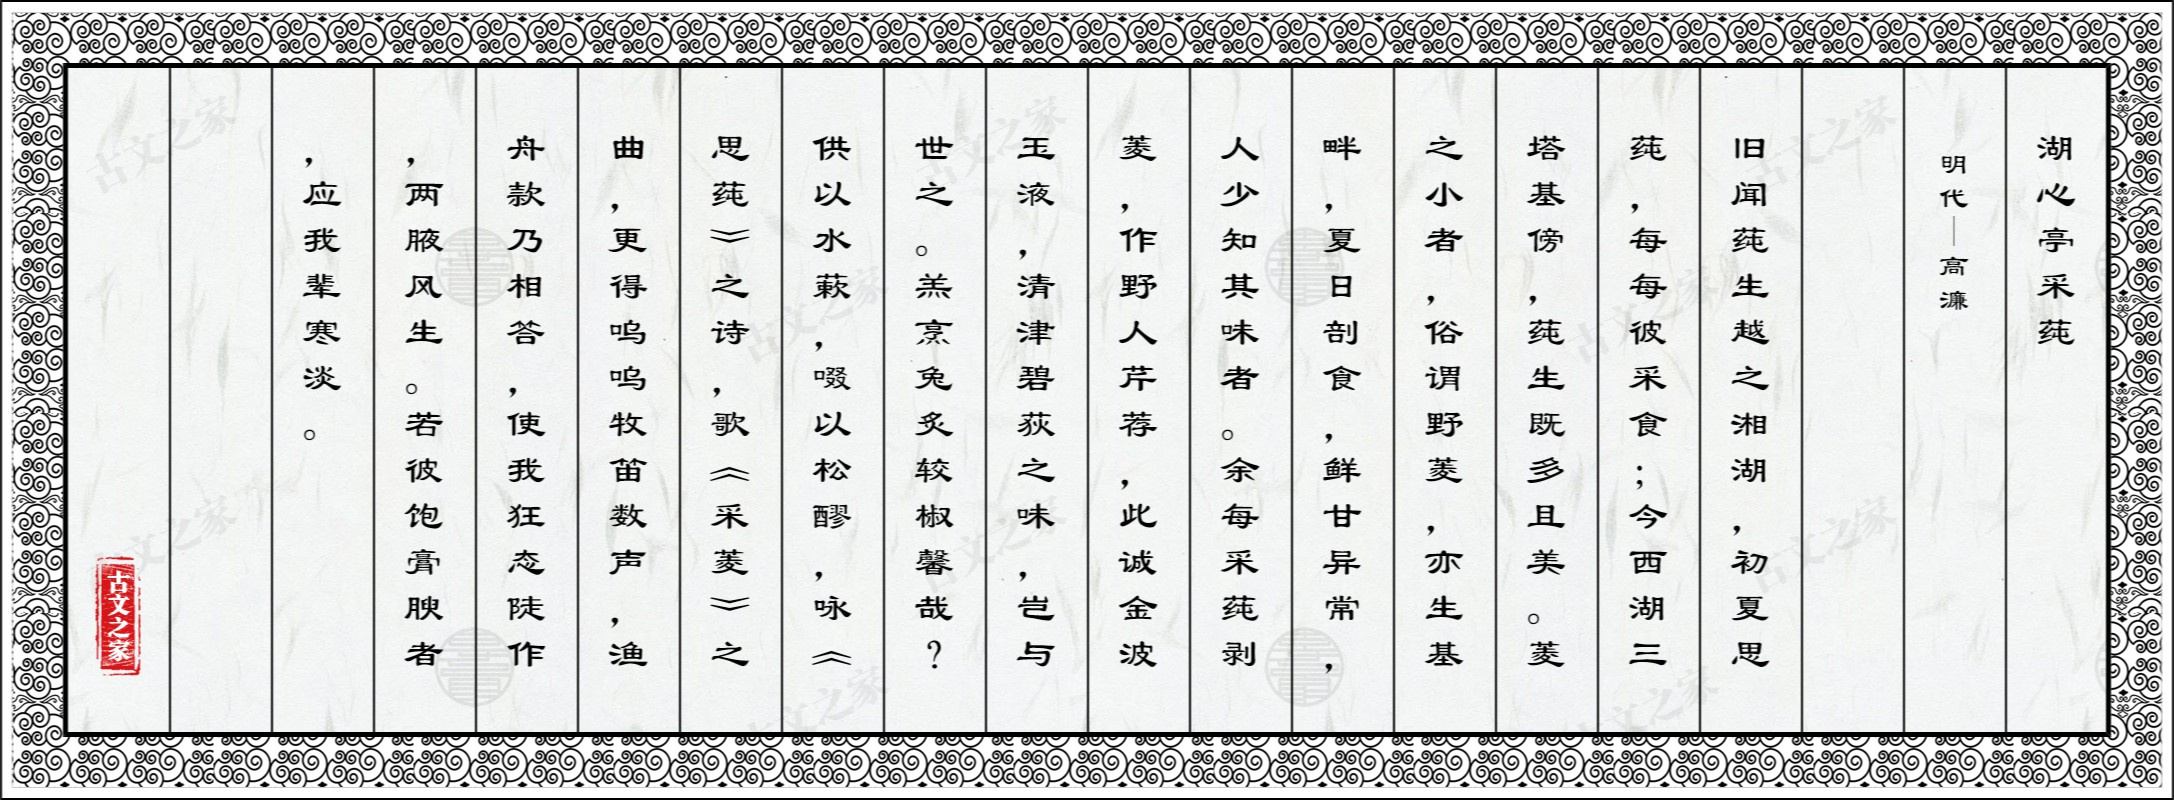 湖心亭采莼
明代—高濂
旧闻莼生越之湘湖，初夏思
莼，每每彼采食；今西湖三
塔基傍，莼生既多且美。菱
之小者，俗谓野菱，亦生基
畔，夏日剖食，鲜甘异常，
人少知其味者。余每采莼剥
菱，作野人芹荐，此诚金波
玉液，清津碧荻之味，岂与
世之。羔烹兔炙较椒馨哉？
供以水蔌，啜以松醪，咏《
思莼》之诗，歌《采菱》之
曲，更得呜呜牧笛数声，渔
舟款乃相答，使我狂态陡作
，两腋风生。若彼饱膏腴者
，应我辈寒淡。
古文之家